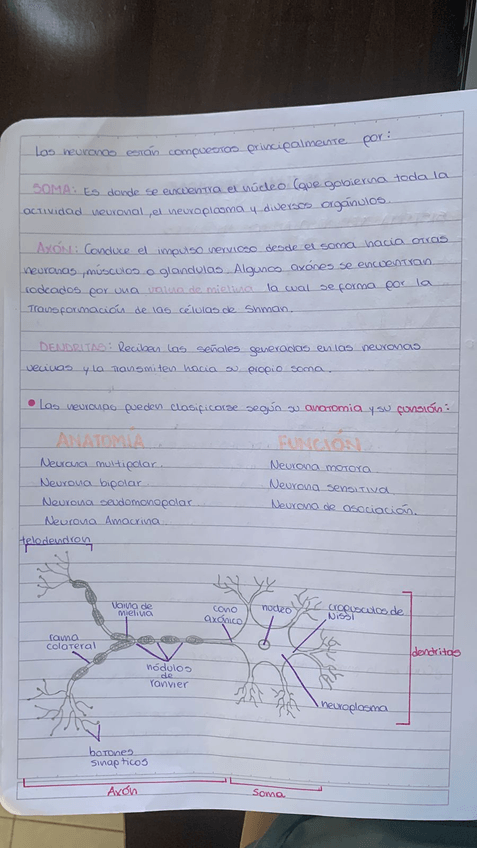 Las neuronas están compuestas principalmente por:
SOMA: Es donde se encuentra el núcleo (que gobierna toda la
actividad neuronal, el neuroplasma y diversos orgánulos.
AXÓN: Conduce el impulso nervioso desde el soma hacia otras
neuronas, músculos o glandulas. Algunos axónes se encuentran
rodeados por una vaina de mielina la cual se forma por la
Transformación de las células de Shman.
DENDRITAS: Reciben las señales generadas en las neuronas
vecinas y la transmiten hacia su propio soma.
• Las neuronas pueden clasificarse según su anatomia y su función:
ANATOMÍA FUNCIÓN
Neurona multipolar. Neurona motora
Neurona bipolar. Neurona sensitiva
Neurona seudomonopolar Neurona de asociación.
Neurona Amacrina.
telodendron
vaina de
mielina
cono
axónico
nucleo
cropusculos de
Nissl
rama
colateral
nódulos
de
ranvier
dendritas
neuroplasma
botones
sinapticos
Axón Soma